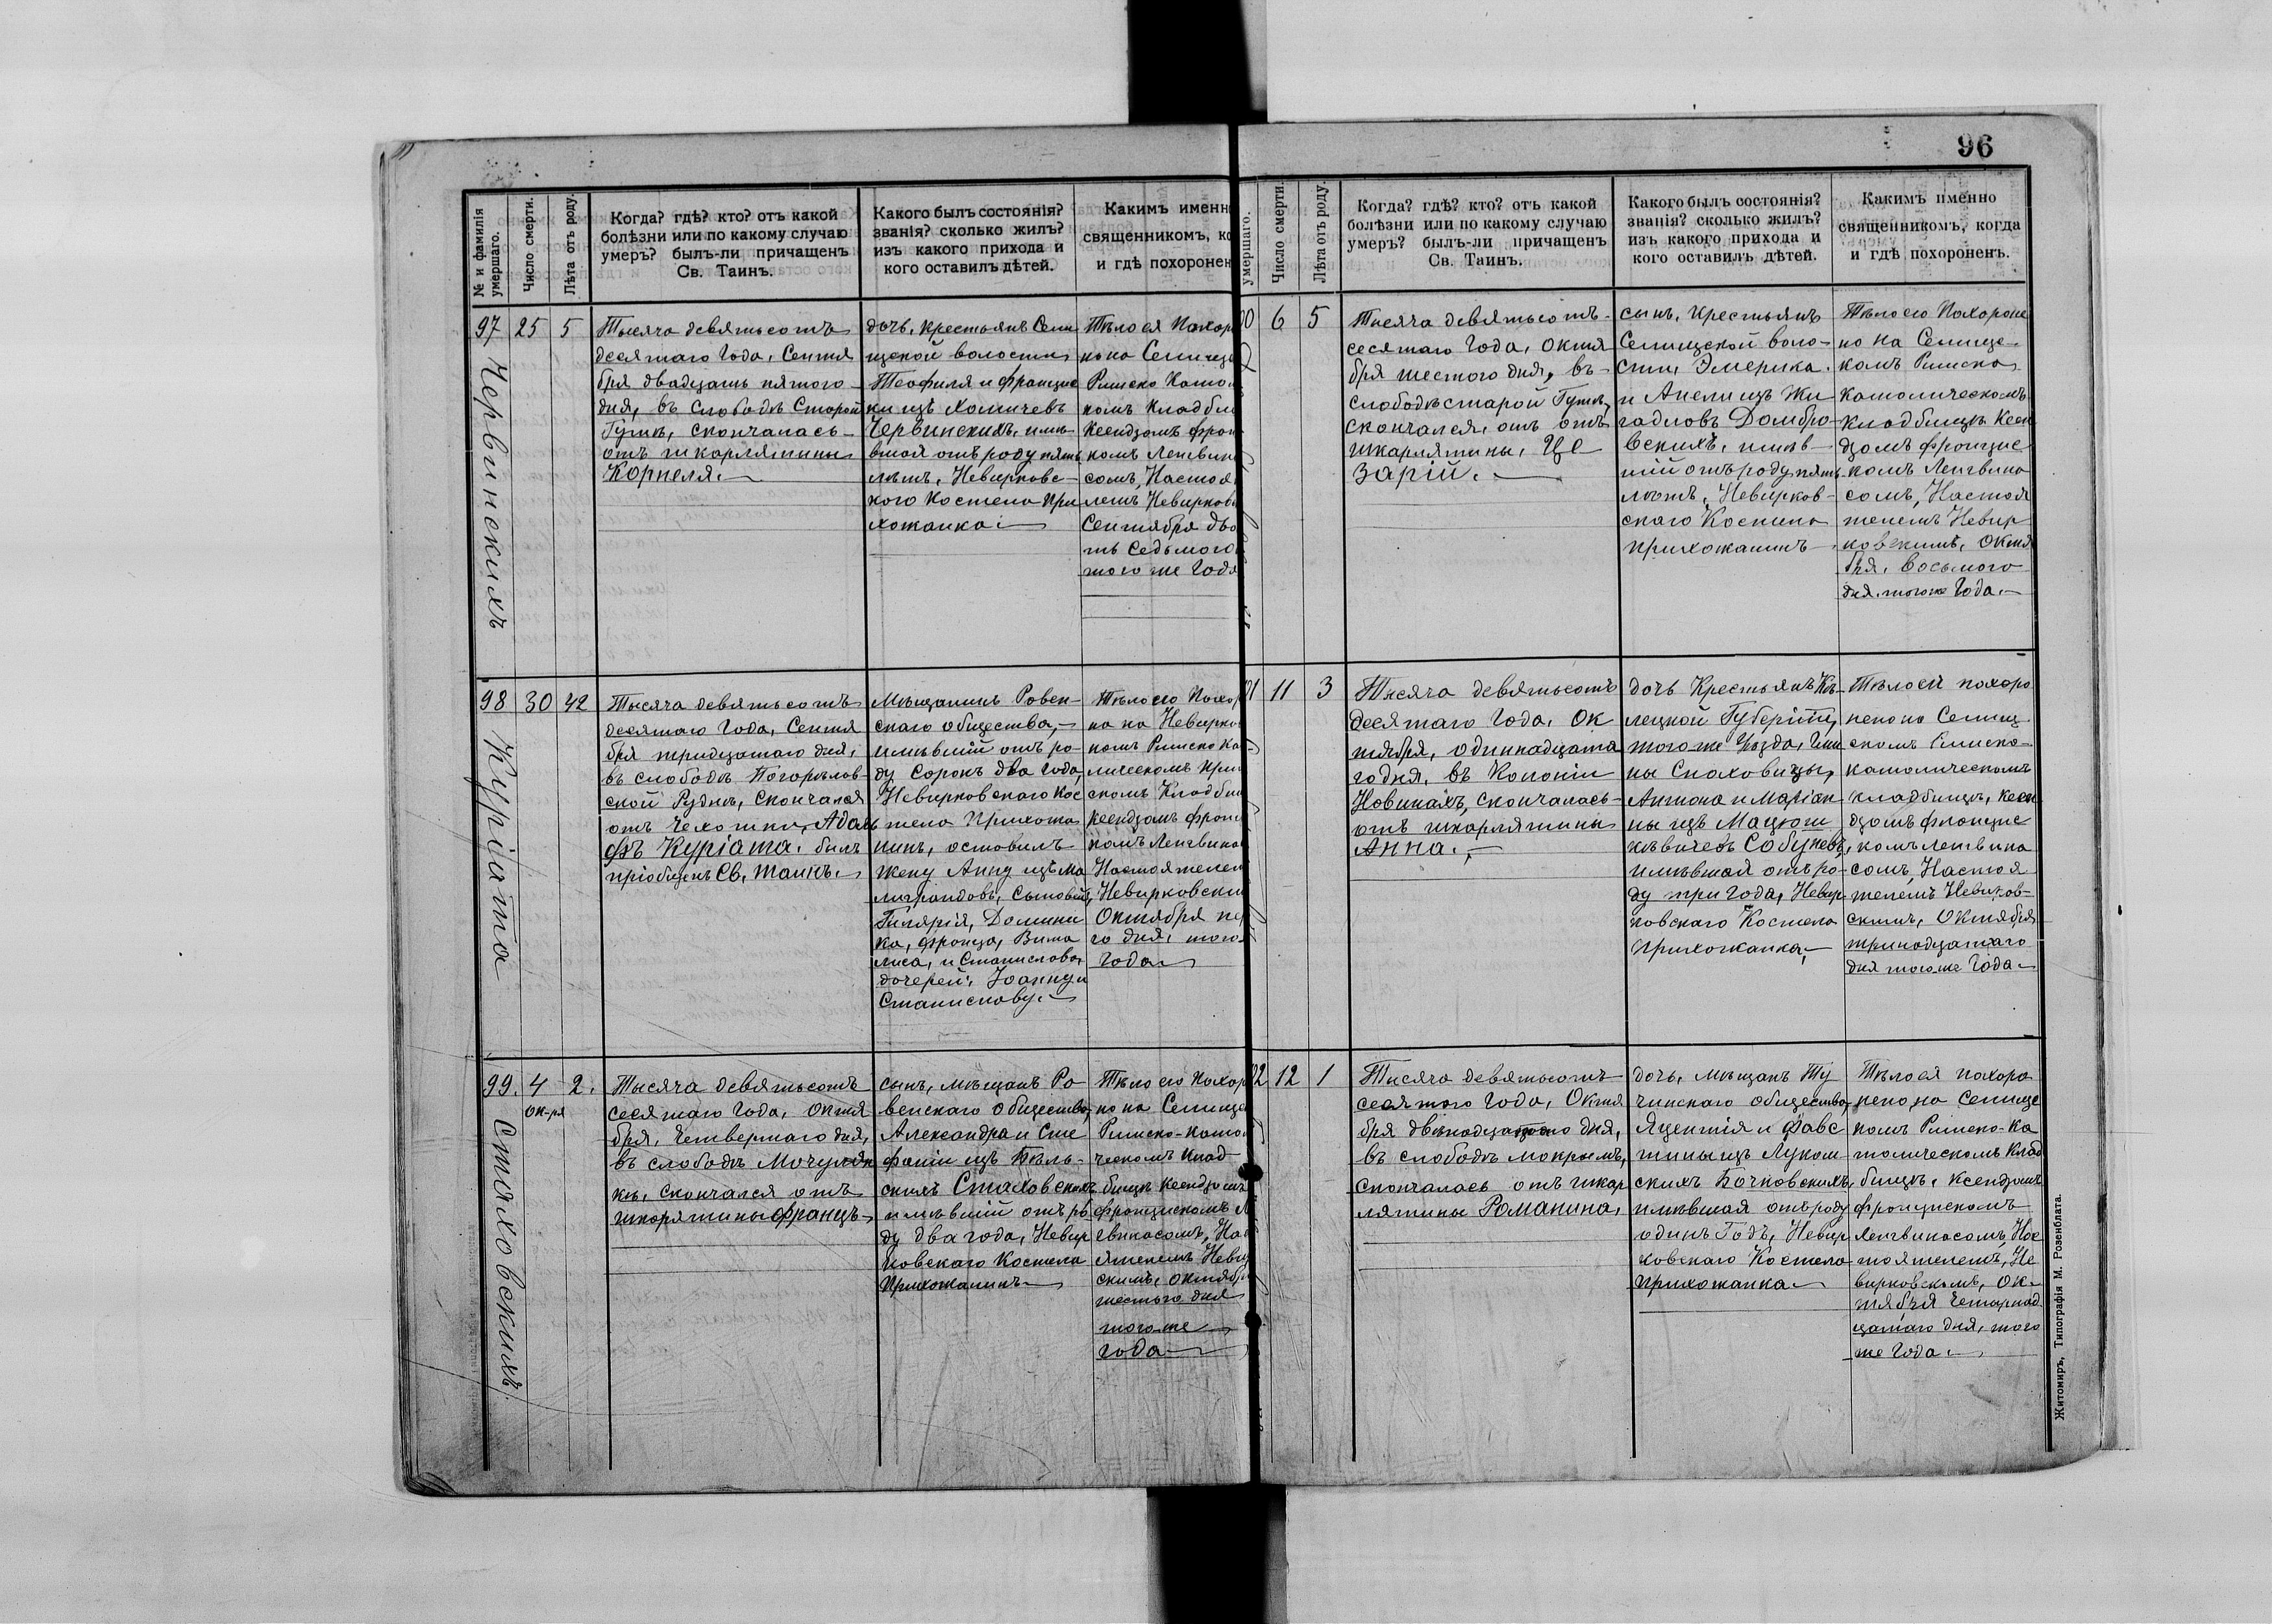 96
№ и фамилія умершаго.
Число смерти.
Лѣта отъ роду.
Когда? гдѣ? кто? отъ какой
болѣзни или по какому случаю
умеръ? былъ-ли причащенъ
Св. Таинъ.
Какого былъ состоянія?
званія? сколько жилъ?
изъ какого прихода и
кого оставилъ дѣтей.
Какимъ именн
священникомъ, ко
и гдѣ похоронен
97
25
5
Червинскихъ
Тысяча девятьсотъ
десятаго Года, Сентя
бря двадцать пятого
дня, въ слободѣ Старой
Гутѣ, скончалась
отъ шкарлятины
Корнеля.
дочь, крестьянъ Сели
щской волости,
Теофиля и Францис
ки изъ Хомичевъ
Червинскихъ, имѣ
вшая отъ роду пять
лѣтъ, Невирковс
кого Костела При
хожанка.
Тѣло ея Похор
но на Селище
Римско Като
комъ Кладби
Ксендзомъ Фран
комъ Ленгвин
сомъ, Настоя
лемъ Невирков
Сентября два
ть седьмого
того же Года
98
30
42
Куріата
Тысяча девятьсотъ
десятаго Года, Сентя
бря тридцатаго дня,
въ слободѣ Погорѣлов
ской Руднѣ, скончался
отъ чахотки, Адоль
фъ Куріата. былъ
пріобщенъ Св. Таинъ.
Мѣщанинъ Ровен
скаго общества,
имѣвшій отъ ро
ду сорокъ два года,
Невирковскаго Кос
тела Прихожа
нинъ, оставилъ
жену Анну изъ Ма
лиграндовъ, сыновей,
Гилярія, Домини
ка, Франца, Вита
лиса, и Станислава,
дочерей: Іоанну и
Станиславу.
Тѣло его Похор
но на Невирко
комъ Римско Ка
лическомъ При
скомъ Кладби
Ксендзомъ Фран
комъ Ленгвина
Настоятелем
Невирковски
Октября пе
го дня, того
Года
99.
4
Ок-ря
2.
Стаховскихъ
Тысяча девятьсотъ
десятаго Года, Октя
бря, четвертаго дня,
въ слободѣ Мочулян
кѣ, скончался отъ
шкарлятины Францъ.
сынъ, мѣщанъ Ро
венскаго общества,
Александра и Сте
фаніи изъ Бѣль
скихъ Стаховскихъ
имѣвшій отъ ро
ду два года, Невир
ковскаго Костела
Прихожанинъ
Тѣло его Похор
но на Селище
Римско-Като
ческомъ Клад
бищѣ Ксендзомъ
Францискомъ Л
гвинасомъ, Нас
ятелемъ Неви
скимъ, Октября
шестого дня
того же
года
умершаго.
Число смерти.
Лѣта отъ роду.
Когда? гдѣ? кто? отъ какой
болѣзни или по какому случаю
умеръ? былъ-ли причащенъ
Св. Таинъ.
Какого былъ состоянія?
званія? сколько жилъ?
изъ какого прихода и
кого оставилъ дѣтей.
Какимъ именно
священникомъ, когда
и гдѣ похороненъ.
00
6
5
Тысяча девятьсотъ
десятаго Года, Октя
бря шестого дня, въ
слободѣ старой Гутѣ,
скончался, отъ отъ
шкарлятины, Це
зарій.
сынъ, Крестьянъ
Селищской воло
сти, Эмерика
и Анели изъ Жи
гадловъ Домбро
вскихъ, имѣв
шій отъ роду пять
лѣтъ, Невирков
скаго Костела
прихожанинъ
Тѣло его Похороне
но на Селище
комъ Римско
Католическомъ
Кладбищѣ Ксен
дзомъ Францис
комъ Ленгвина
сомъ, Настоя
телемъ Невир
ковскимъ, Октя
бря, восьмого
дня, того же Года.
01
11
3
Тысяча девятьсотъ
десятаго Года. Ок
тября, одинадцата
го дня, въ Колоніи
Новинахъ, скончалась
отъ шкарлятины
Анна.
дочь Крестьянъ Кѣ
лецкой Губерніи,
того же Уѣзда, Гми
ны Снаховицы,
Антона и Маріан
ны изъ Мацюш
кѣвичевъ Собуневъ,
имѣвшая отъ ро
ду три года, Невир
ковскаго Костела
прихожанка,
Тѣло ей похоро
нено на Селищ
скомъ Римско
католическомъ
кладбищѣ, ксен
дзомъ Францис
комъ Ленгвина
сомъ, Настоя
телемъ Невирков
скимъ, Октября
тринадцатаго
дня того же Года
02
12
1
Тысяча девятьсотъ
десятого Года, Октя
бря двѣнадцатого дня,
въ слободѣ Мокромъ,
скончалась отъ шкар
лятины Романина,
дочь, мѣщанъ Ту
чинскаго общества,
Яцентія и Фавс
тины изъ Луком
скихъ Бочковскихъ,
имѣвшая отъ роду
одинъ Годъ, Невир
ковскаго Костела
прихожанка
Тѣло ея похоро
нено, на Селище
комъ Римско-Ка
толическомъ Клад
бищѣ, Ксендзомъ
Францискомъ
Ленгвинасомъ, Нас
тоятелемъ, Не
вирковскомъ, Ок
тября четырнад
цатаго дня, того
же Года.
Житомиръ, Типографія М. Розенблата.